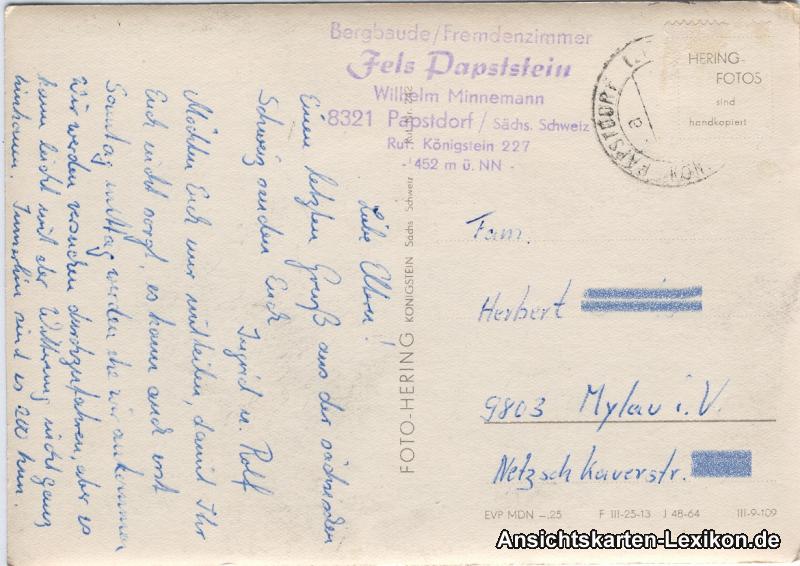 Bergbaude/Fremdenzimmer
Fels Papststein
Wilhelm Minnemann
8321 Papstdorf / Sächs. Schweiz
Ruf: Königstein 227
- 452 m ü. NN -
HERING-
FOTOS
sind
handkopiert
PAPSTDORF
Liebe Eltern!
Einen letzten Gruß aus der sächsischen
Schweiz senden Euch
Ingrid u. Rolf
Möchten Euch nur mitteilen, damit Ihr
Euch nicht sorgt, es kann auch erst
Sonntag mittag werden ehe wir ankommen
Wir werden versuchen durchzufahren, aber es
kann leicht mit der Witterung nicht ganz
hinhauen. Immerhin sind es 200 km.
FOTO-HERING KÖNIGSTEIN Sächs. Schweiz
Fam.
Herbert
9803 Mylau i. V.
Netzschkauerstr.
EVP MDN -.25 F III-25-13 J 48-64 III-9-109
Ansichtskarten-Lexikon.de